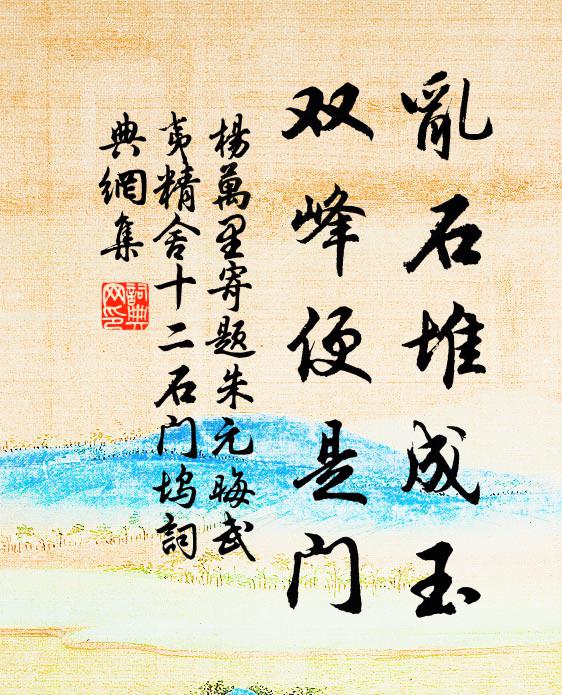 亂石堆成玉
双峰便是门
楊萬里寄題朱元晦武
夷精舍十二石门坞詞
典網集
詞典
网印